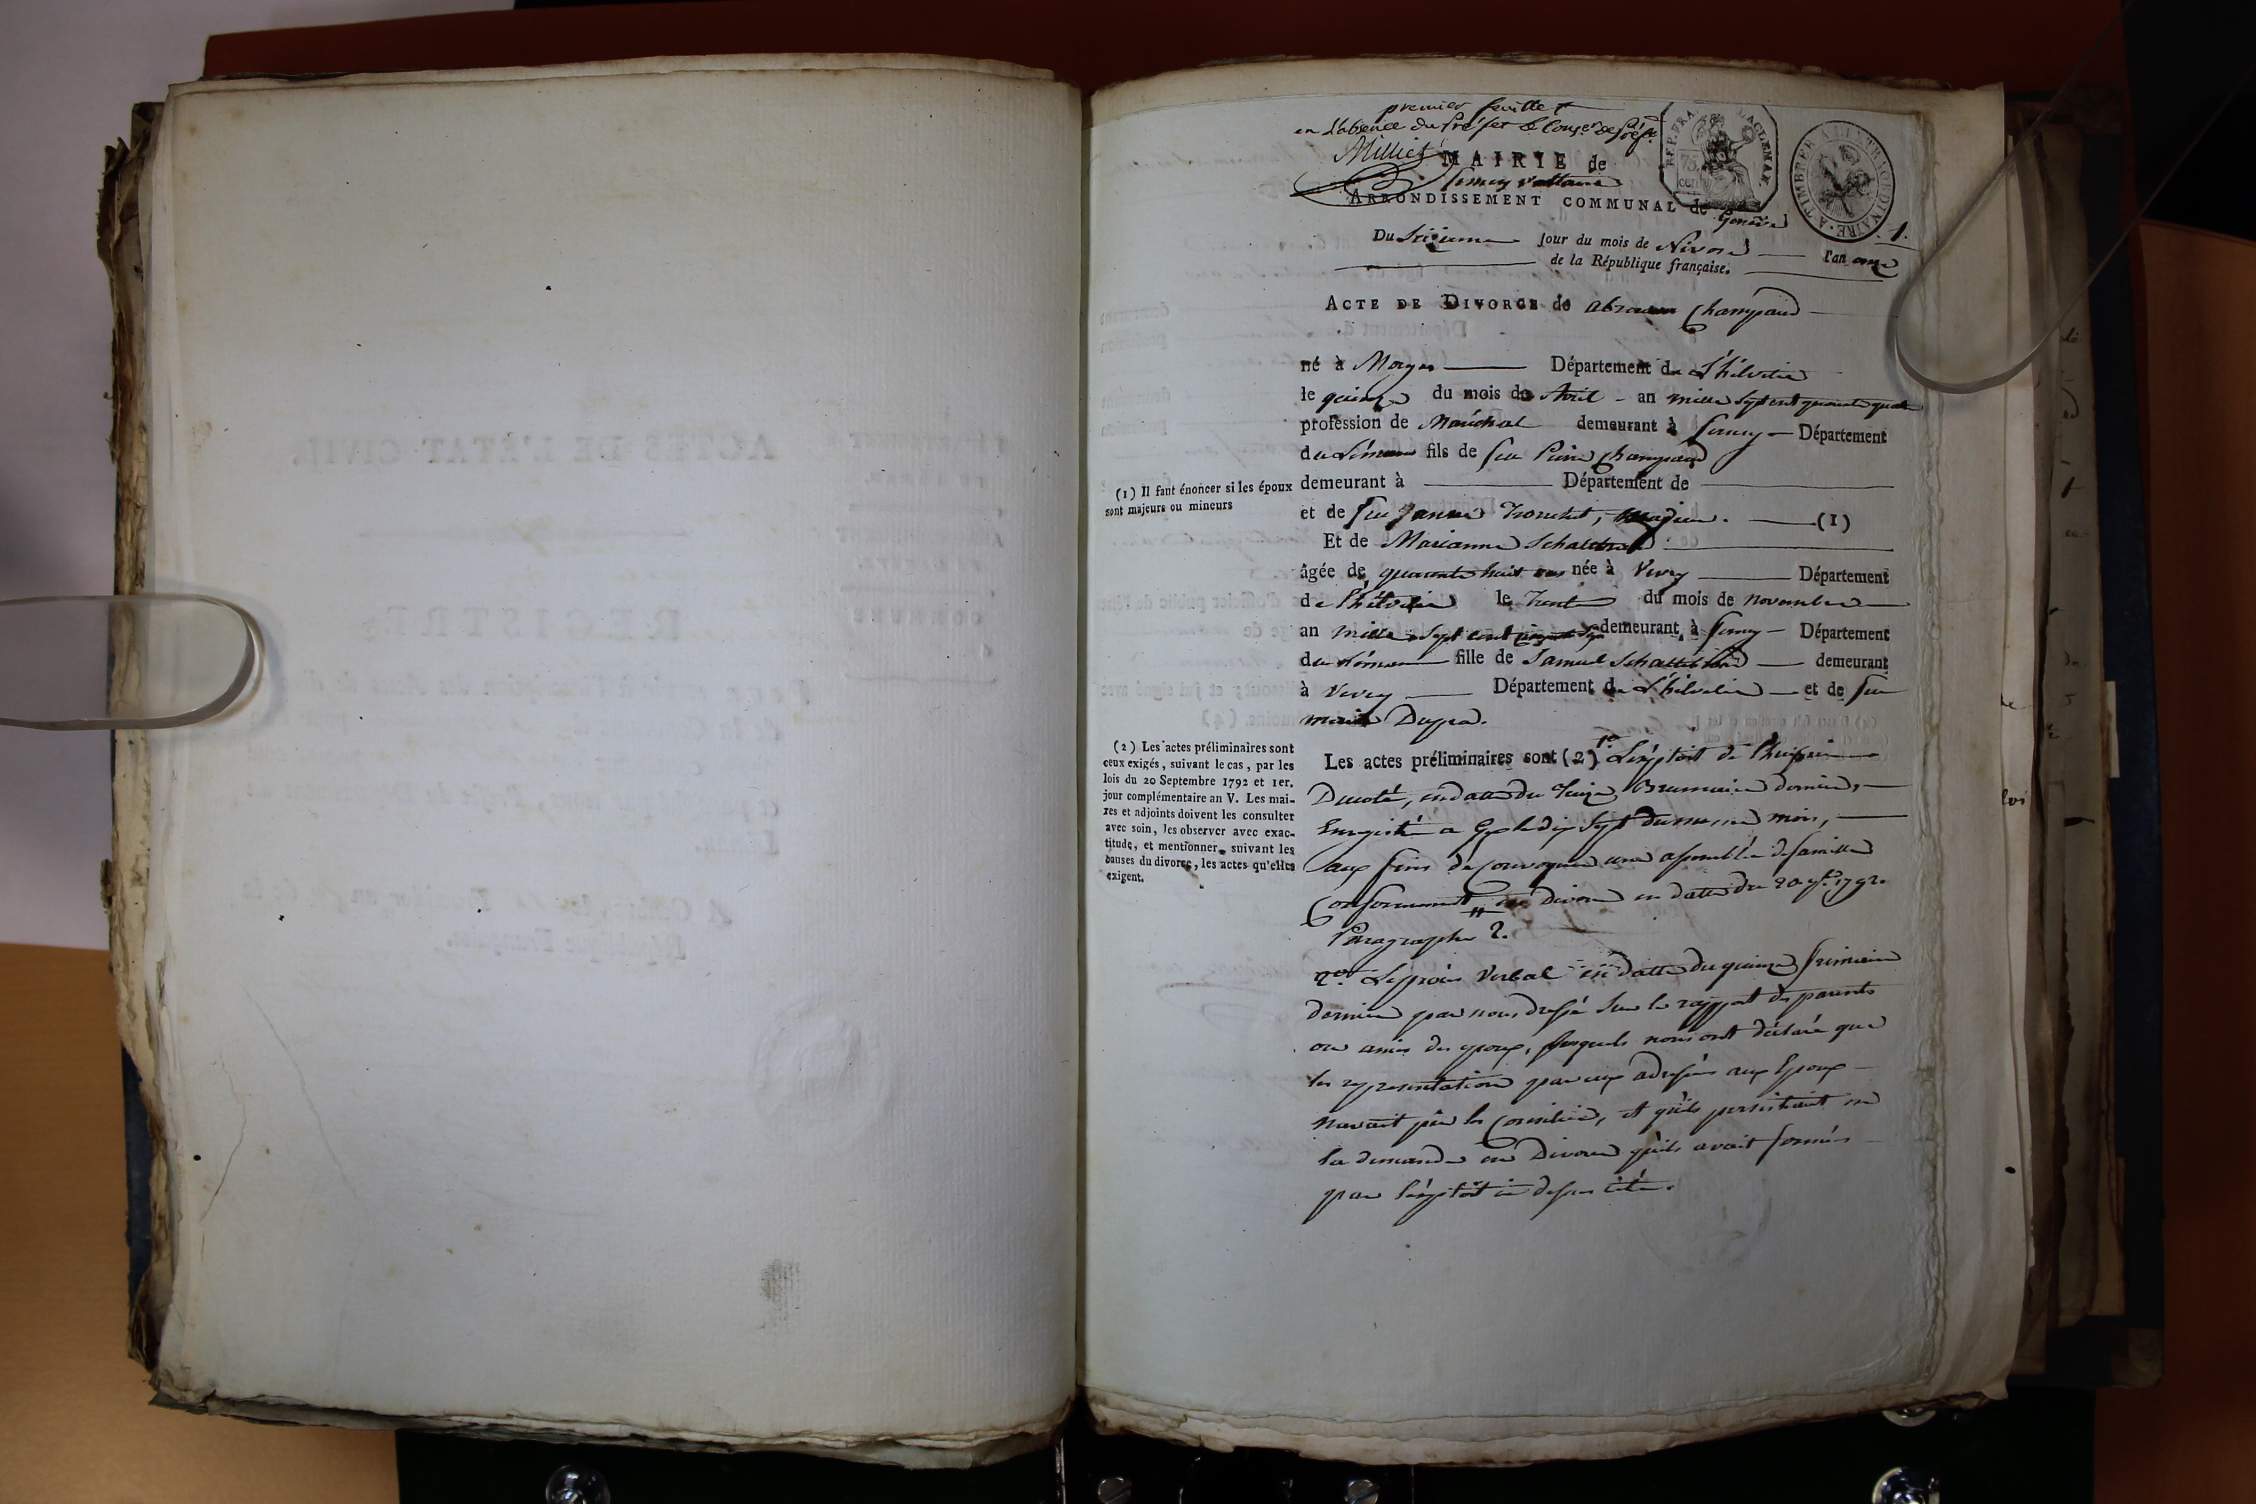 premier feuillet
en l'absence du Préfet le Conser. de Préfre.
Milliet
MAIRIE de
ferney voltaire
ARRONDISSEMENT COMMUNAL de Genève
REP. FRA.
75
cen
A TIMBRER A L'EXTRAORDINAIRE
1.
Du Seizieme jour du mois de Nivose l'an onze
de la République française.
ACTE DE DIVORCE de abraam Champaud
né à Morges Département de L'hélvétie
le quinze du mois de Avril an mille sept cent quarante quatre
profession de Maréchal demeurant à ferney Département
du Léman fils de feu Pierre Champaud
demeurant à Département de
et de feu Jeanne Tronchet, majeur. (1)
Et de Marianne
âgée de quarante huit ans née à Vevey Département
de l'hélvétie le Trente du mois de novembre
an mille sept cent demeurant à ferney Département
du Léman fille de Samuel demeurant
à Vevey Département de L'hélvétie et de feu
marie Dupra.
(1) Il faut énoncer si les époux
sont majeurs ou mineurs
(2) Les actes préliminaires sont
ceux exigés, suivant le cas, par les
lois du 20 Septembre 1792 et 1er.
jour complémentaire an V. Les mai-
res et adjoints doivent les consulter
avec soin, les observer avec exac-
titude, et mentionner, suivant les
causes du divorce, les actes qu'elles
exigent.
Les actes préliminaires sont (2) 1o. L'éxploit de l'huissier
Ducoté, en datte du Seize Brumaire dernier,
Enregistré a Gex le dix sept du mesme mois,
aux fins de convoquer une assemblée de famille
Conformement divorce en datte du 20 7bre. 1792.
Paragraphe 2.
2o. Le procès verbal en datte du quinze frimaire
dernier par nous dressé sur le rapport des parents
ou amis des epoux, lesquels nous ont déclaré que
les representations par eux adressées aux Epoux
n'avait pu les Concilier, et qu'ils persistaient en
la demande en Divorce qu'ils avait formés
par l'éxploit ci dessus cité.